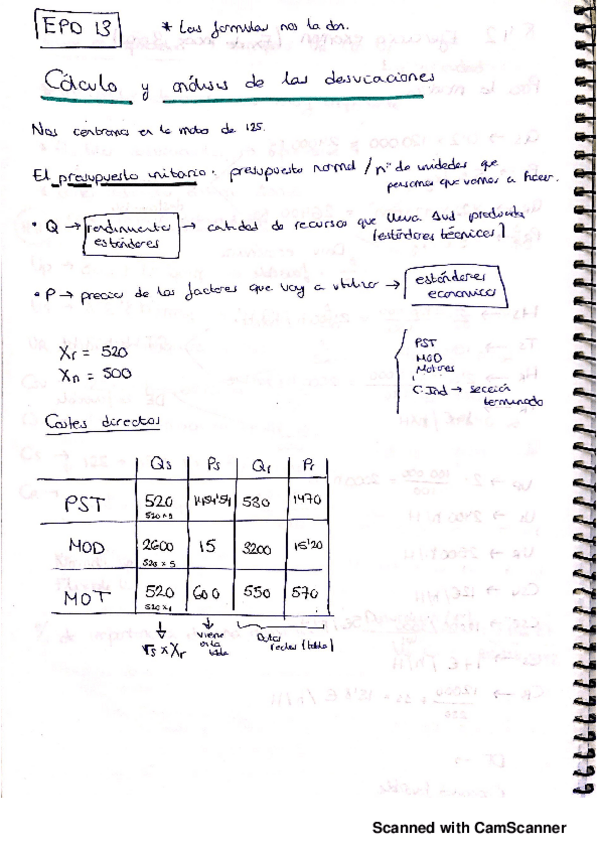 EPD 13
* Las formulas nos la dan.
Cálculo y análisis de las desviaciones
Nos centramos en la moto de 125.
El presupuesto unitario: presupuesto normal / nº de unidades que
pensamos que vamos a hacer.
• Q → rendimientos estándares → cantidad de recursos que lleva cada producto
(estándares técnicos)
• P → precio de los factores que voy a utilizar → estándares
economicos
Xr = 520
Xn = 500
PST
MOD
Motores
C. Ind → sección
terminado
Costes directos
Qs Ps Qr Pr
PST 520 1454'54 530 1470
520 x 1
MOD 2600 15 3200 15'20
520 x 5
MOT 520 600 550 570
520 x 1
↓ ↓
x Xr
viene
en la
tabla
Datos
reales (tabla)
Scanned with CamScanner